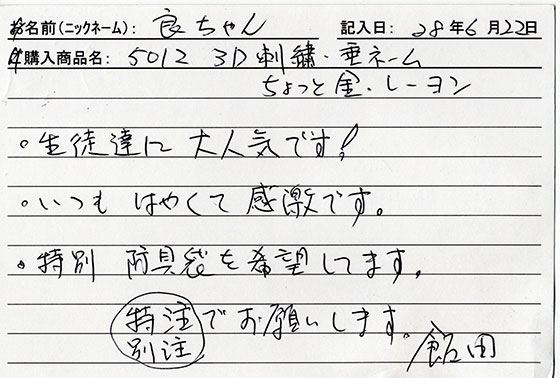 お名前(ニックネーム): 良ちゃん 記入日: 28年6月22日
ご購入商品名: 5012 3D刺繍・垂ネーム
ちょっと金・レーヨン
。生徒達に大人気です!
。いつも はやくて 感激です。
。特別 防具袋を希望してます。
特注 でお願いします。
別注
飯田